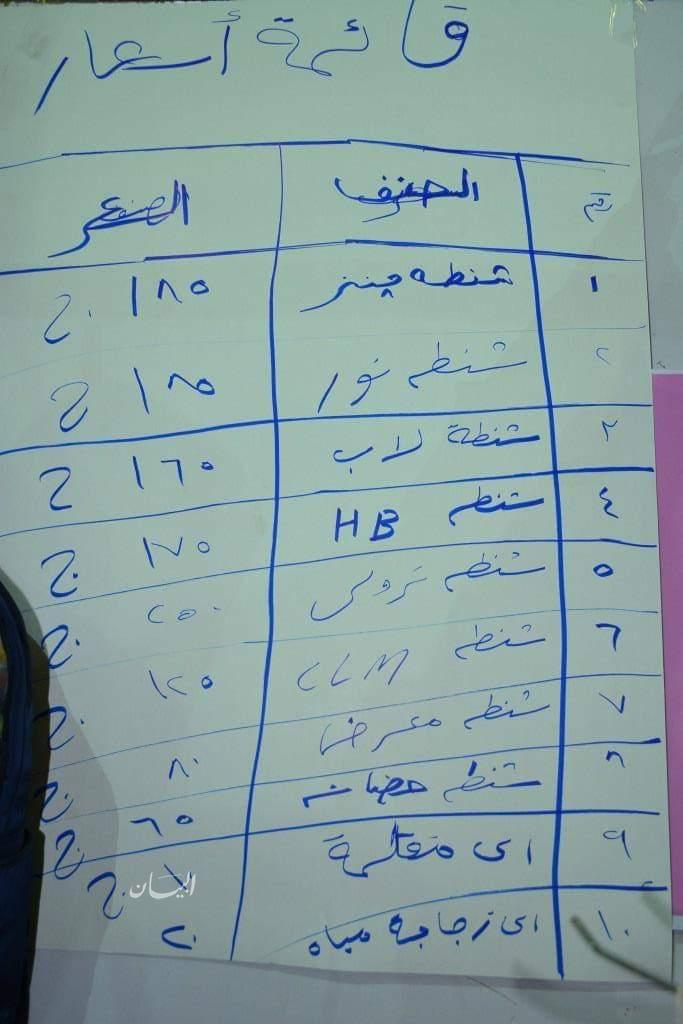 قائمة أسعار
رقم الصنف السعر
١ شنطه جينز ١٨٥ ج
٢ شنطه نور ١٨٥ ج
٣ شنطة لاب ١٦٥ ج
٤ شنطه HB ١٧٥ ج
٥ شنطه تروس ٢٥٠ ج
٦ شنطه CLM ١٢٥ ج
٧ شنطه معرض ٨٠ ج
٨ شنطه حضانه ٦٥ ج
٩ اى مقلمة ج
١٠ اى زجاجه مياه ٢٠
البيان